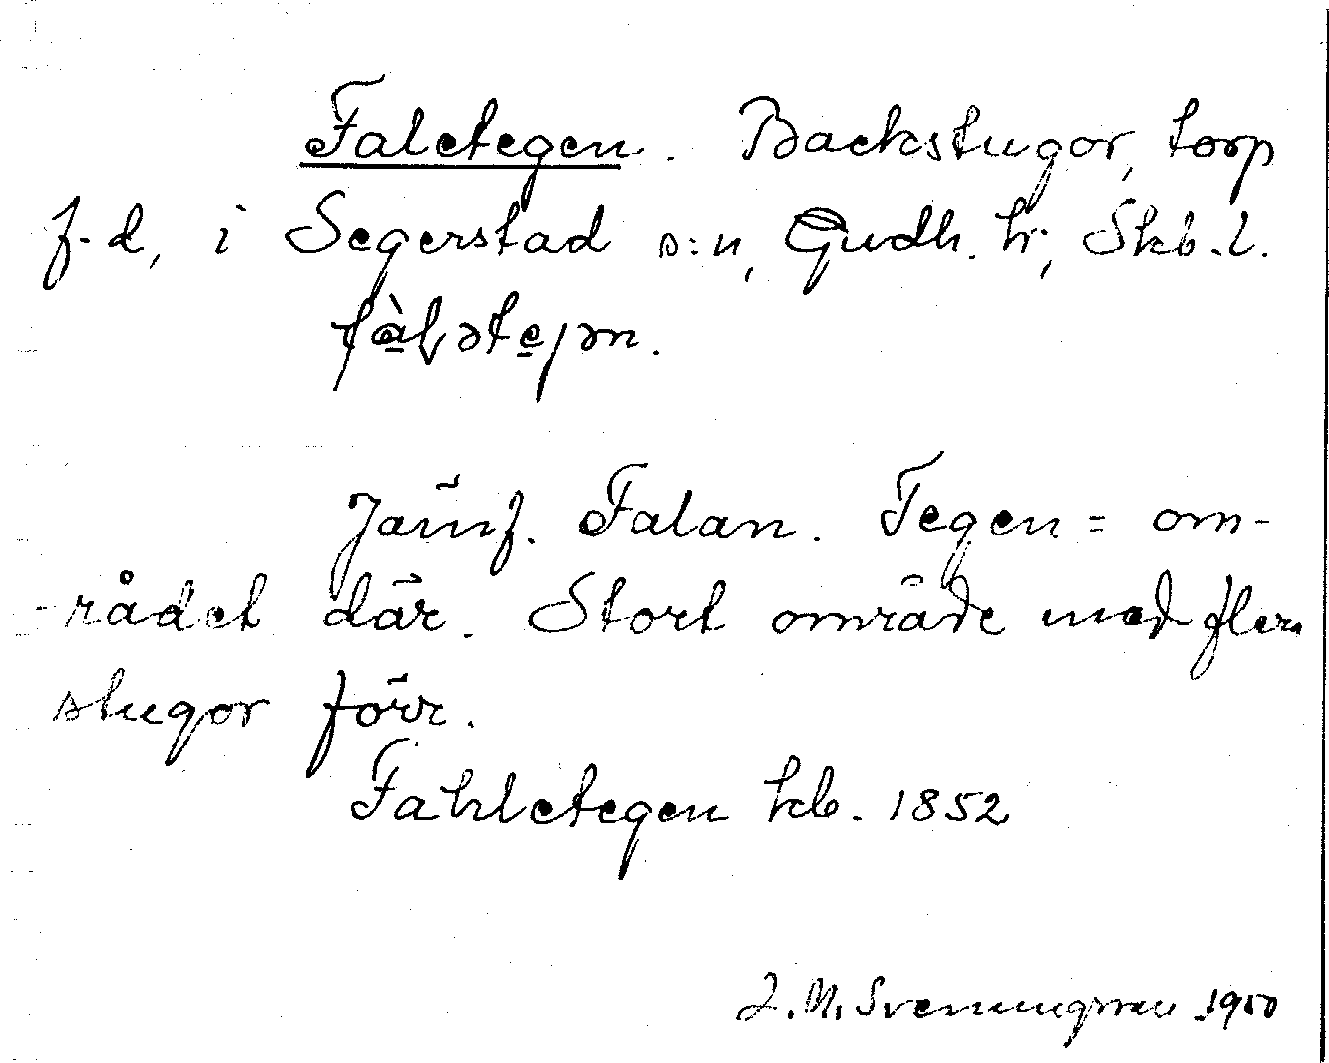 Faletegen. Backstugor, torp
f.d., i Segerstad s:n, Gudh. hr; Skb. l.
Jämf. Falan. Tegen = om-
-rådet där. Stort område med flera
stugor förr.
Fahletegen hb. 1852
J. N. Svenningsson 1950